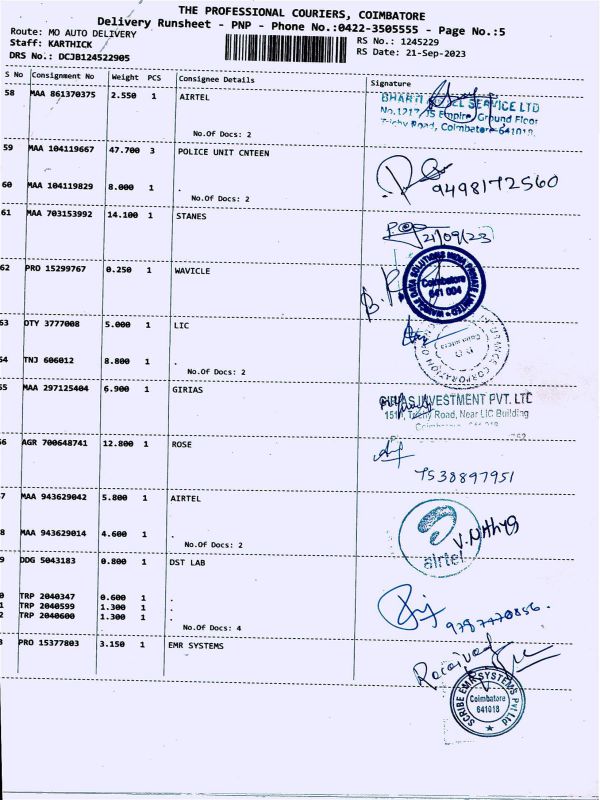 THE PROFESSIONAL COURIERS, COIMBATORE
Delivery Runsheet - PNP - Phone No.:0422-3505555 - Page No.:5
Route: MO AUTO DELIVERY
Staff: KARTHICK
RS No.: 1245229
DRS No.: DCJB124522905
RS Date: 21-Sep-2023
S No Consignment No Weight PCS Consignee Details Signature
58 MAA 861370375 2.550 1 AIRTEL
SERVICE LTD
No.1217, Empire, Ground Floor
Trichy Road, Coimbatore-641018.
No.Of Docs: 2
59 MAA 104119667 47.700 3 POLICE UNIT CNTEEN
60 MAA 104119829 8.000 1 .
9498172560
No.Of Docs: 2
61 MAA 703153992 14.100 1 STANES
21/09/23
62 PRO 15299767 0.250 1 WAVICLE
WAVICLE DATA SOLUTIONS INDIA PRIVATE LIMITED
Coimbatore
641 004
63 OTY 3777008 5.000 1 LIC
54 TNJ 606012 8.800 1 .
No.Of Docs: 2
55 MAA 297125404 6.900 1 GIRIAS
INVESTMENT PVT. LTD
Trichy Road, Near LIC Building
56 AGR 700648741 12.800 1 ROSE
7538897951
7 MAA 943629042 5.800 1 AIRTEL
8 MAA 943629014 4.600 1 .
airtel
No.Of Docs: 2
9 DDG 5043183 0.800 1 DST LAB
0 TRP 2040347 0.600 1 .
1 TRP 2040599 1.300 1 .
2 TRP 2040600 1.300 1 .
9787770856.
No.Of Docs: 4
3 PRO 15377803 3.150 1 EMR SYSTEMS
Received
SCRIBE EMR SYSTEMS Pvt Ltd
Coimbatore
641018